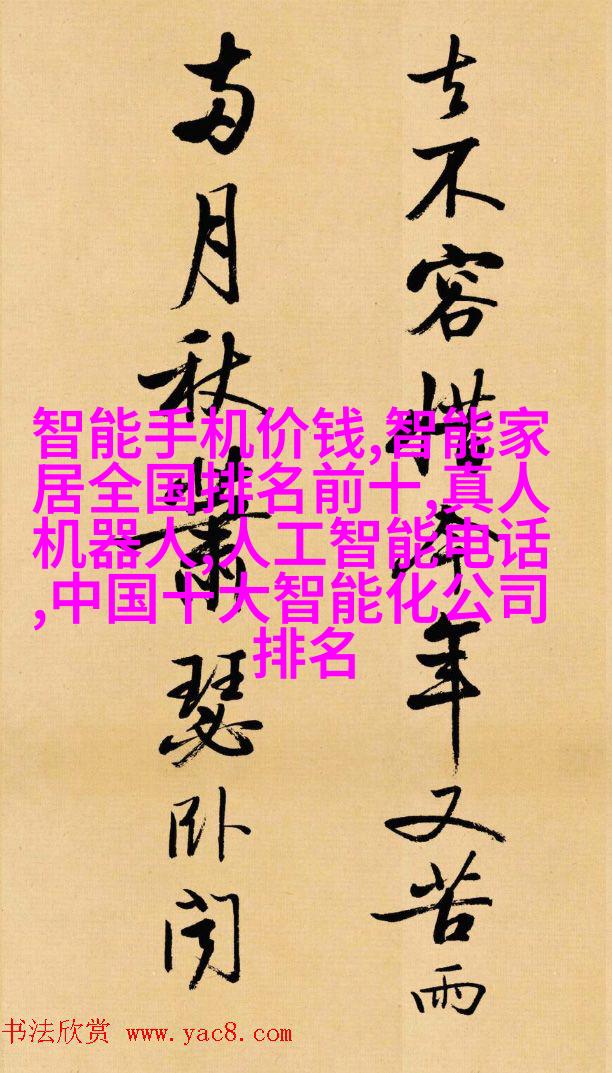 去不容惜今年又苦雨
兩月秋蕭瑟卧聞
智能手机价钱,智能家
居全国排名前十,真人
机器人,人工智能电话
,中国十大智能化公司
排名
书法欣赏 www.yac8.com